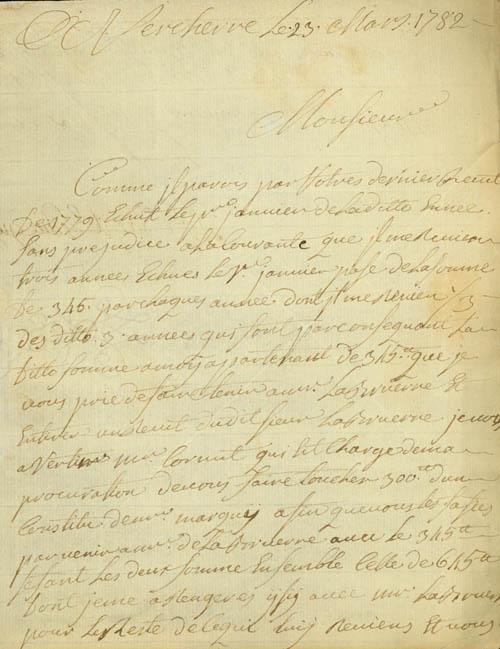 A Vercherre Le 23 Mars 1782
Monsieur
Comme jl parois par Votres dernier Recuit
De 1779 Echuit Le pr janvier de La ditto Année
Sans prejudice a La Courante que jl me Revien
trois années Echues Le pr janvier pase de La somme
De 345 par chaques année dont jl me Revien 1/3
des ditto 3 années qui font par consequant La
ditto somme a moi apartenant de 345 que je
vous prie de faire tenir a mr La Bruerre Et
En tirer un Recuit du dit sieur La Bruerre je vous
avertire mr Cornut qui Est Charge de ma
procuration de vous faire toucher 300 d'un
Constitu de mr marquij afin que vous les fassies
parvenir a mr de La Bruerre avec le 345
fesant Les deux somme Ensemble Celle de 645
dont je me arengeres ysy avec mr La Bruerre
pour Le Reste de ce qui luij Reviens Et vous